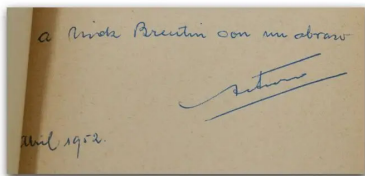 a Linda Brentin con un abrazo
Arturo
abril 1952.